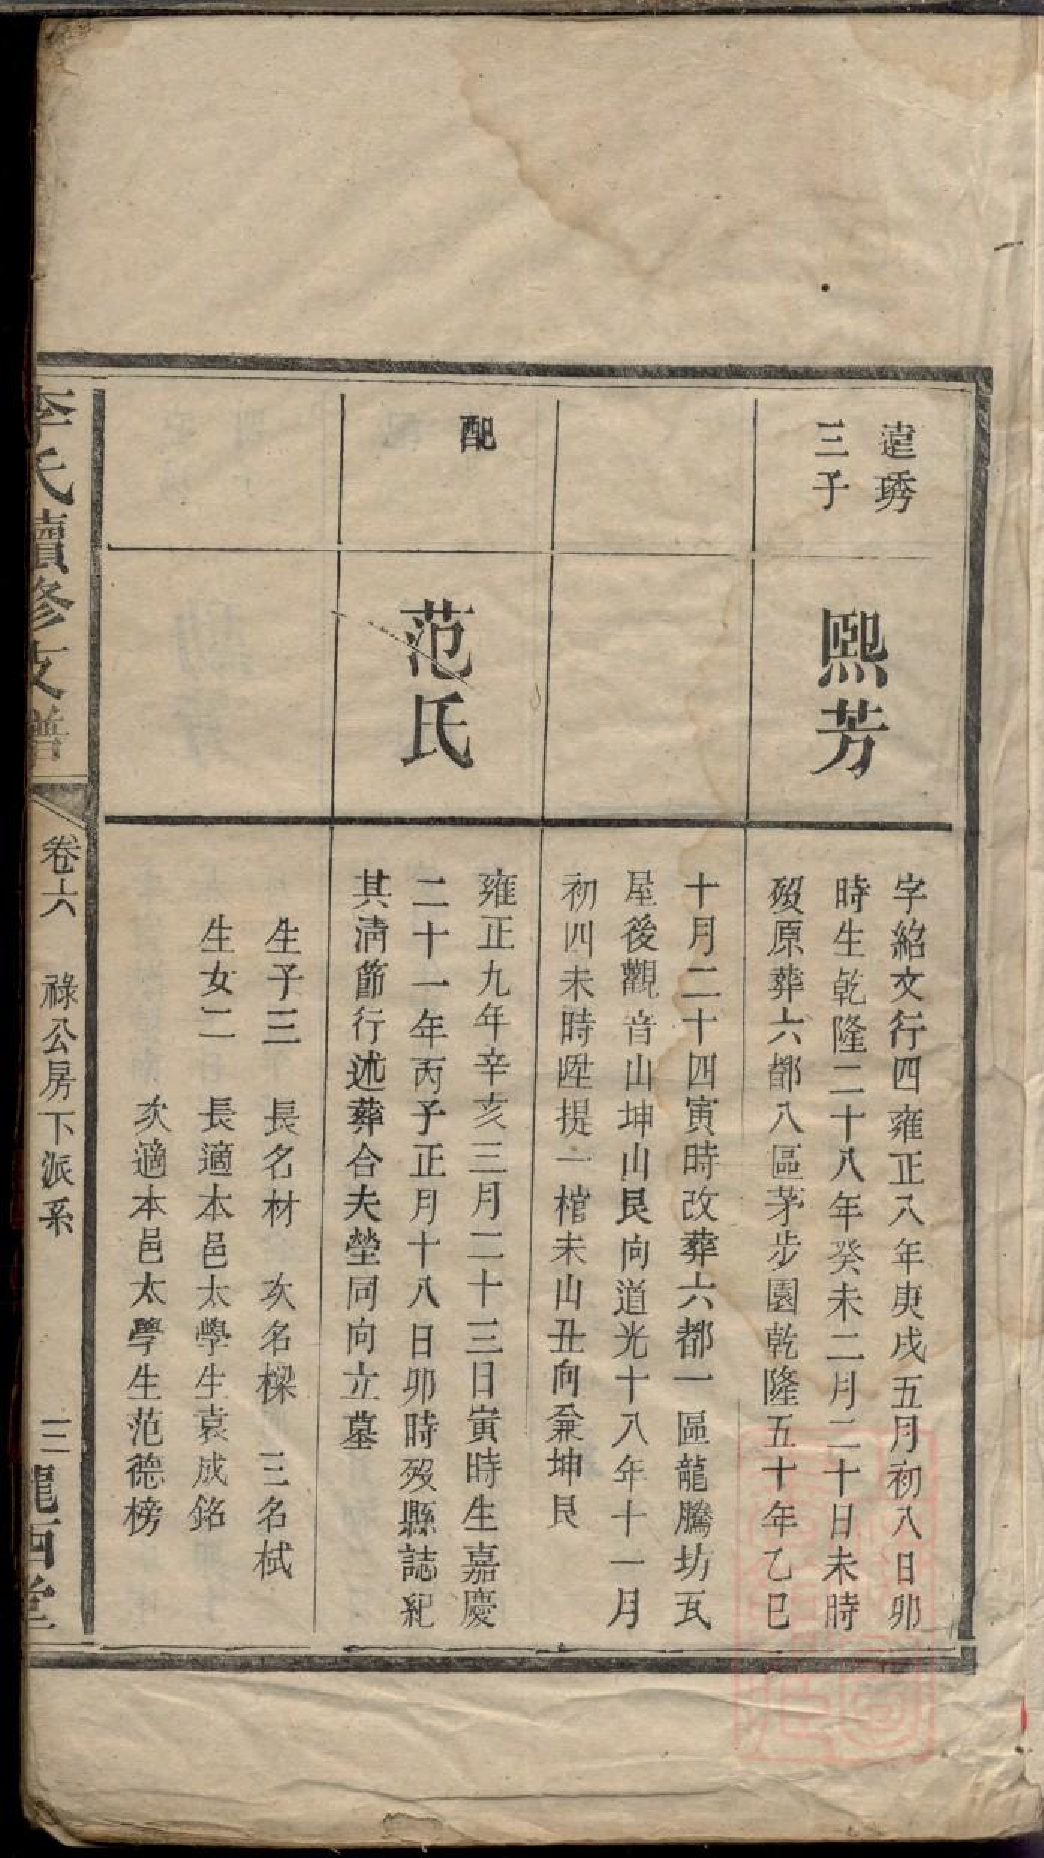 遠琇
三子
熙芳
字紹文行四雍正八年庚戌五月初八日卯
時生乾隆二十八年癸未二月二十日未時
歿原葬六都八區茅步園乾隆五十年乙巳
十月二十四寅時改葬六都一區龍騰坊瓦
屋後觀音山坤山艮向道光十八年十一月
初四未時陞提一棺未山丑向兼坤艮
配
范氏
雍正九年辛亥三月二十三日寅時生嘉慶
二十一年丙子正月十八日卯時歿縣誌紀
其清節行述葬合夫塋同向立墓
生子三 長名材 次名樑 三名栻
生女二 長適本邑太學生袁成銘
次適本邑太學生范德榜
李氏續修支譜
卷六 祿公房下派系
三
隴西堂